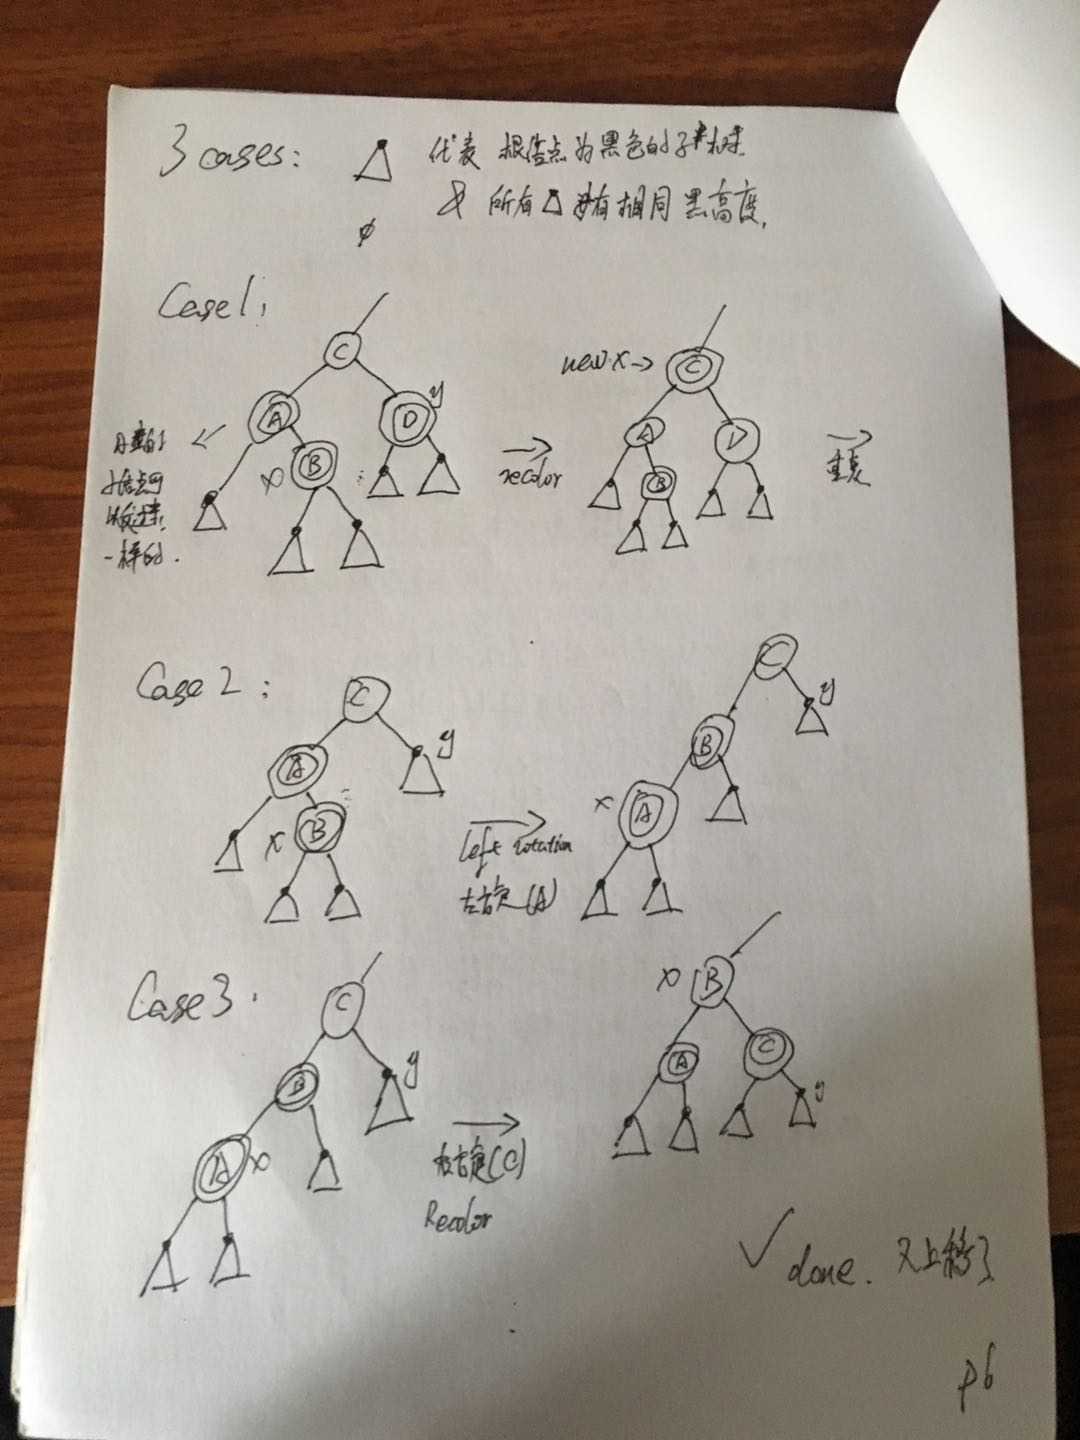 3 cases: 代表 根结点为黑色的子树.
& 所有△具有相同黑高度.
Case 1:
C
new x → C
A D y
x B
A D
B
recolor
一样的.
Case 2:
C
C
y
y
A
B
x B
x A
Left rotation
左旋(A)
Case 3.
C
x B
B
y
A C
y
A x
右旋(C)
Recolor
✓ done. 又上移了
P6